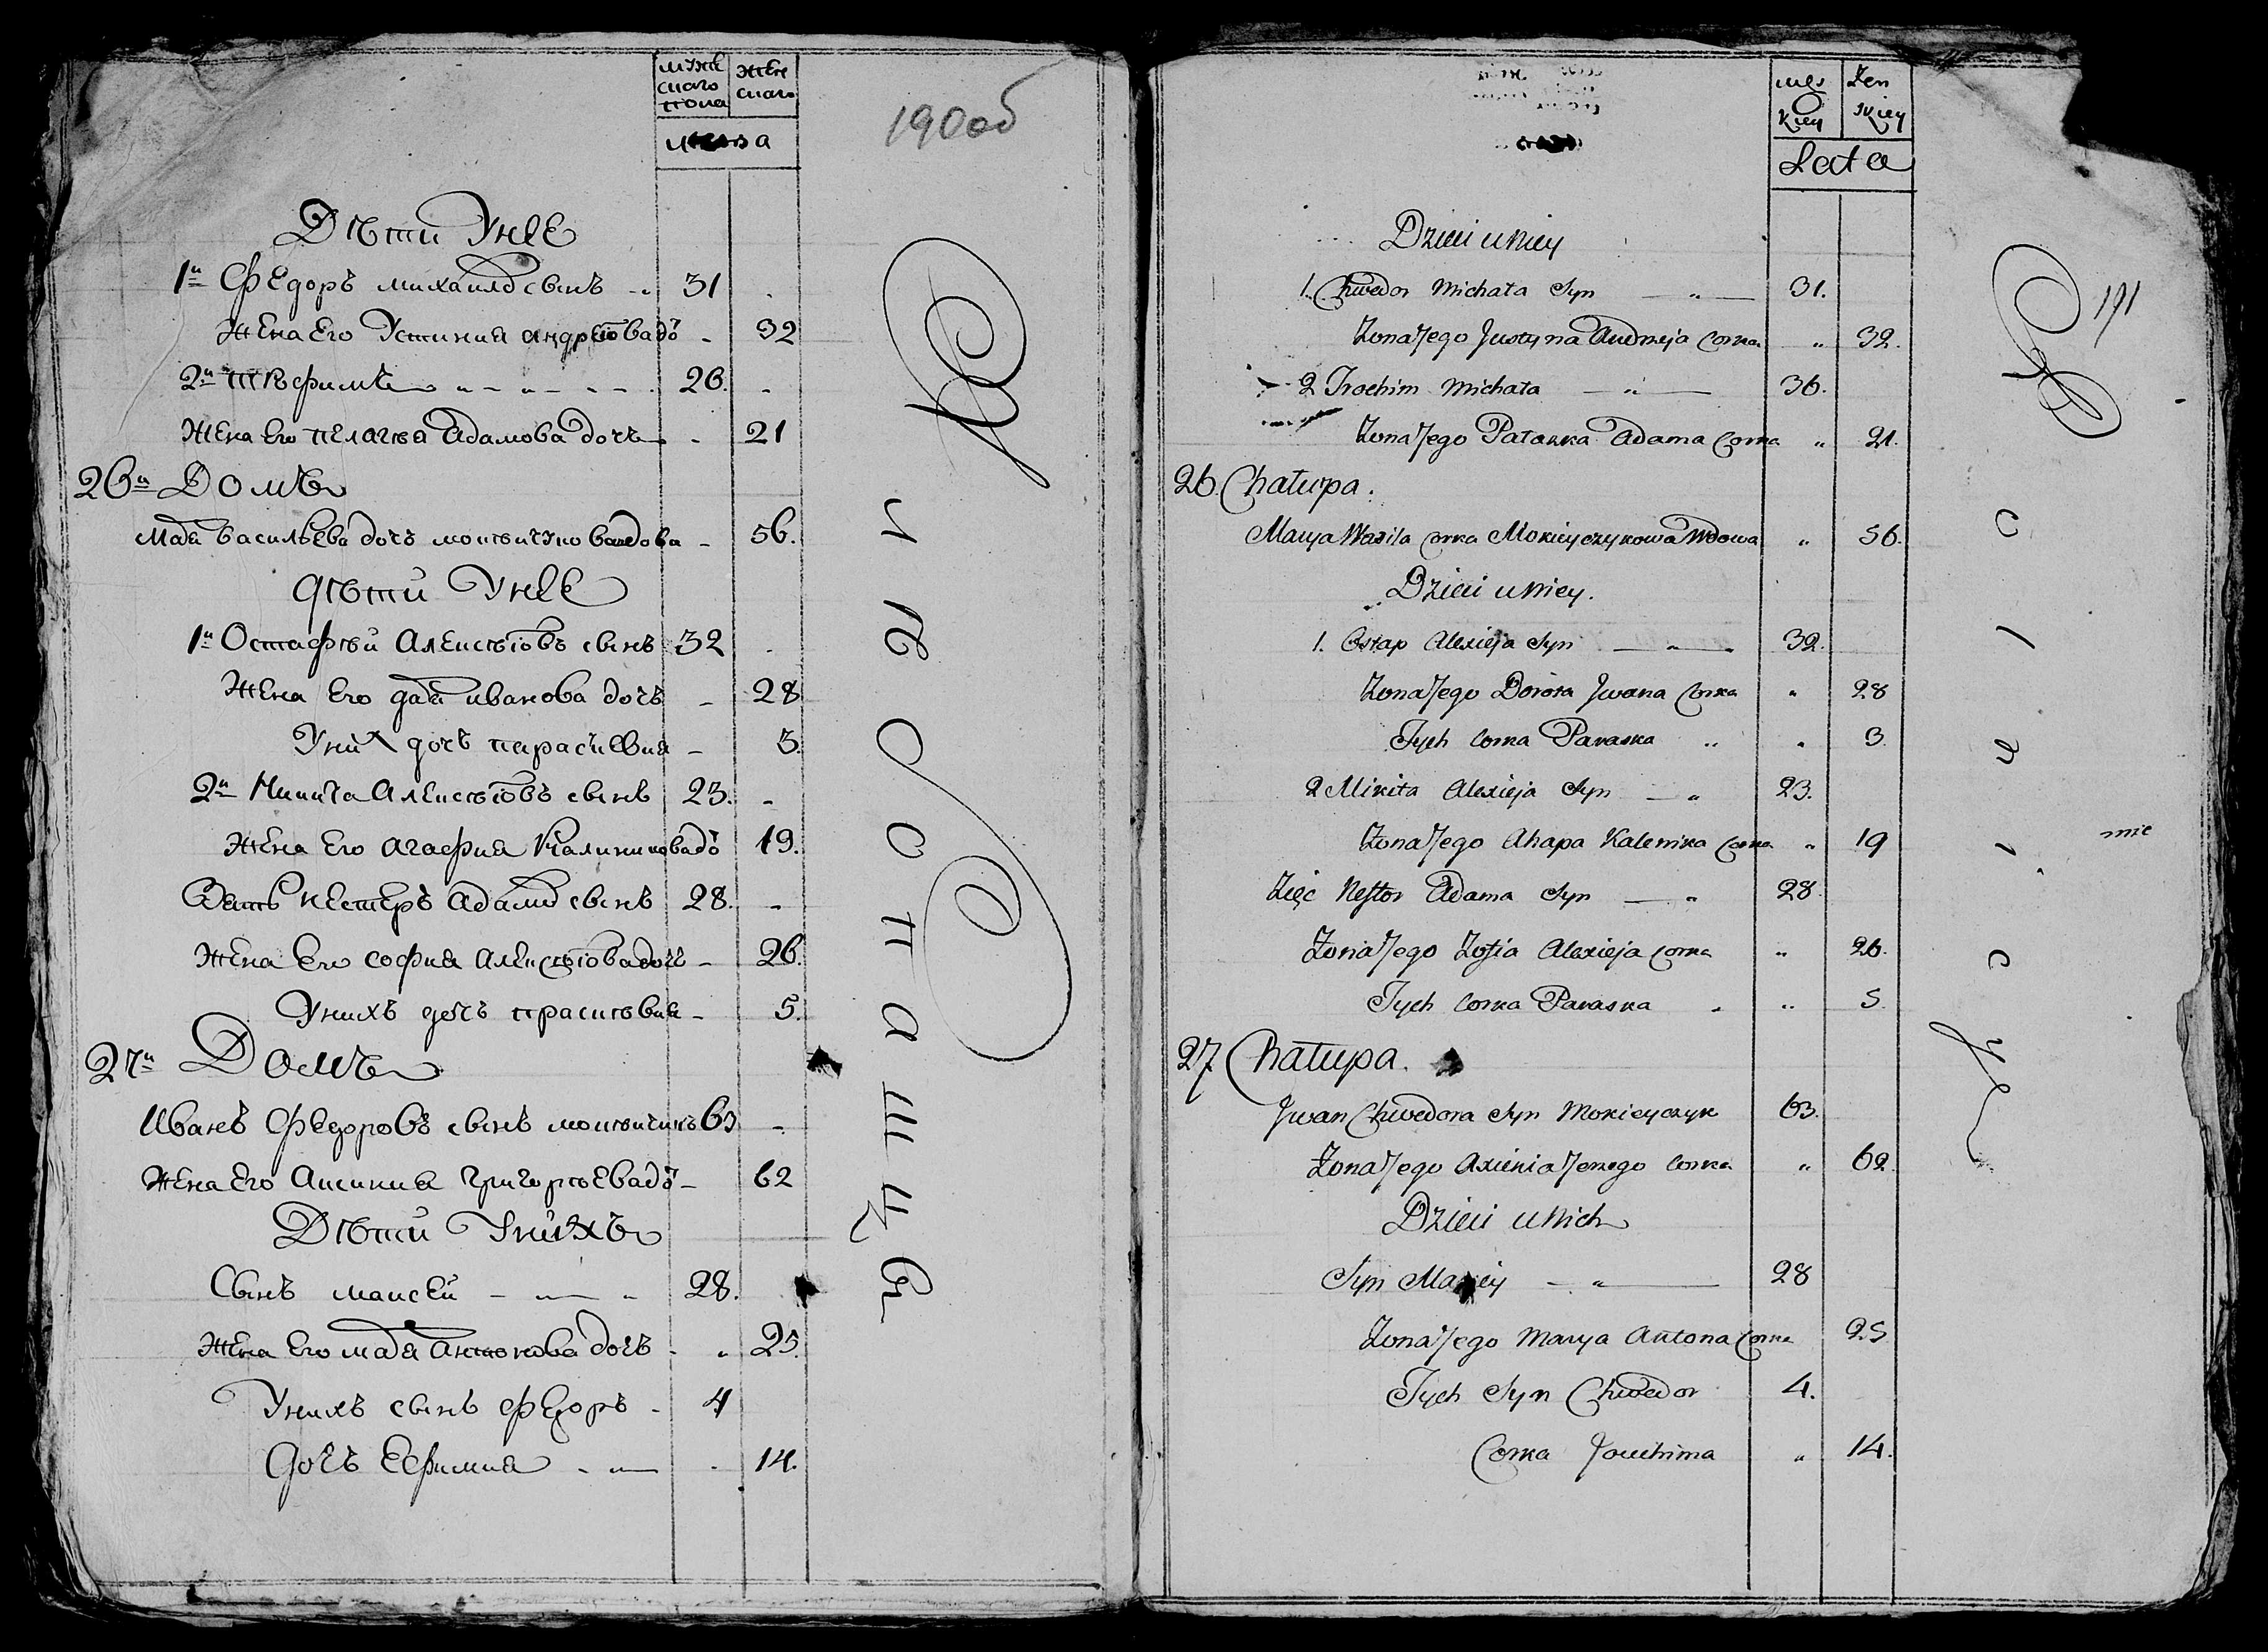 муже
жен
скаго
скаго
пола
190об
Дѣти Унее
1й Федоръ Михаиловъ сынъ 31
Жена Его Устиния Андрѣева до 32
2й Трофимъ 26.
Жена Его Пелагѣя Адамова дочъ 21
26й Домъ
Василѣева дочъ 56.
дѣти Унее
1й Остафѣй Алексѣовъ сынъ 32
Жена Его Иванова дочъ 28
Уних дочъ Параскевия 3.
2й Никита Алексѣовъ сынъ 23.
Жена Его Агафия Калиникова до 19.
Зять Нестеръ Адамовъ сынъ 28.
Жена Его София Алексѣова дочъ 26.
Унихъ дочъ Прасковия 5.
27й Домъ
Иванъ Федоровъ сынъ 63
Жена Его Аксиния Григорѣева до 62
Дѣти Унихъ
Сынъ Маисей 28.
Жена Его Антонова дочъ 25.
Унихъ сынъ Федоръ 4
Дочъ Ефимия 14.
męs
kiey
Żen
skiey
Lata
191
Dzieci u niey
1. Chwedor Michała Syn 31.
Żona Jego Justyna Andrzeja Corka " 32.
2 Trochim Michała 36.
Żona Jego Pałaszka Adama Corka " 21.
26. Chałupa.
Marya Wasila corka Mokieyczykowa Wdowa " 56.
Dzieci u niey.
1. Ostap Alexieja Syn 32.
Żona Jego Dorota Jwana Corka " 28
Tych Corka Paraska " 3
2 Mikita Alexieja Syn 23.
Żona Jego Ahapa Kalenika Corka " 19
Zięć Nestor Adama Syn 28.
Żona Jego Zofia Alexieja Corka " 26.
Tych Corka Paraska " 5.
27 Chałupa.
Jwan Chwedora Syn Mokieyczyk 63.
Żona Jego Axienia Corka " 62.
Dzieci u nich
Syn 28
Żona Jego Marya Antona Corka 25
Tych Syn Chwedor 4.
Corka " 14.